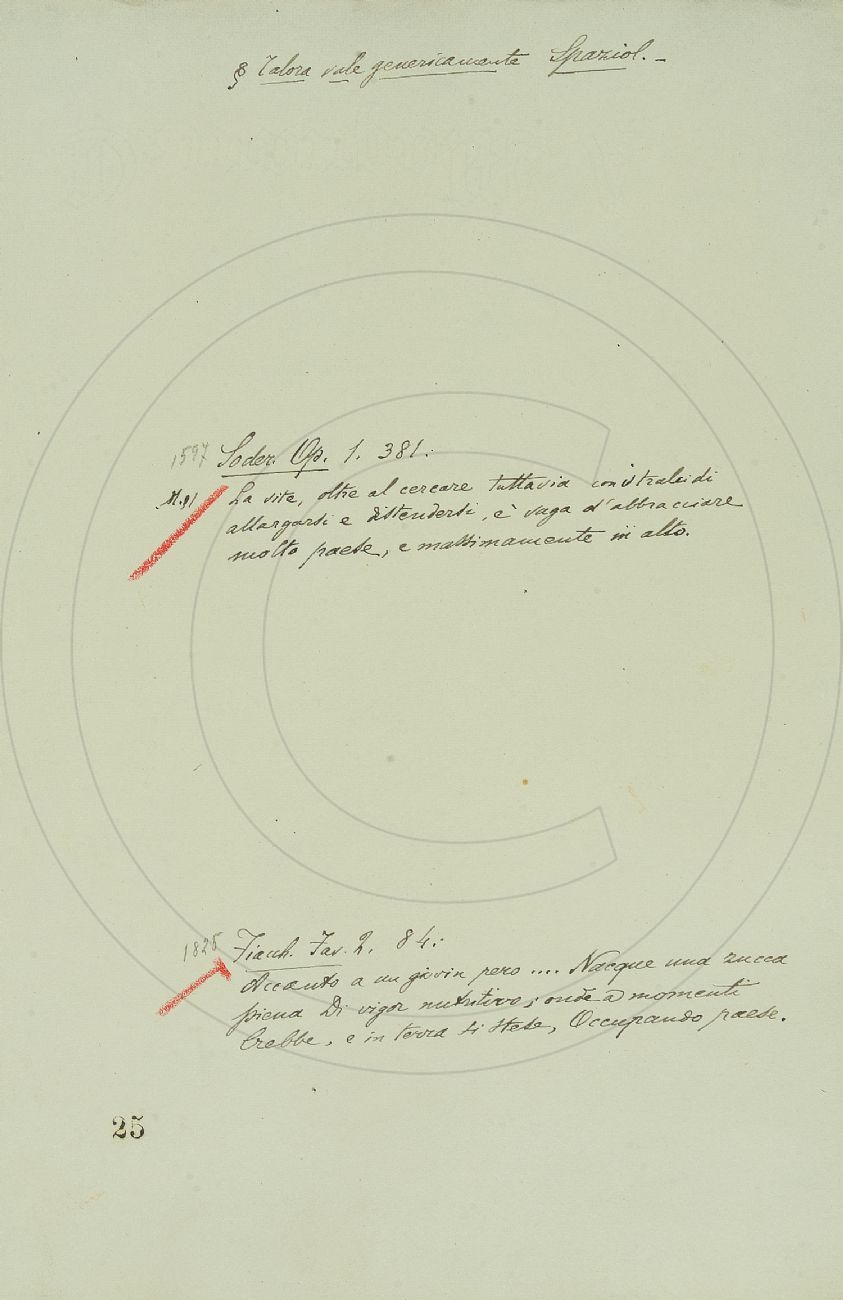 § Talora vale genericamente Spaziol. –
1597 Soder. Op. 1. 381.:
La vite, oltre al cercare tuttavia con i tralci di
allargarsi e distendersi, è vaga d'abbracciare
molto paese, e massimamente in alto.
1825 Fiacch. Fav. 2. 84.:
Accanto a un giovin pero .... Nacque una zucca
piena di vigor nutritivo; onde a momenti
Crebbe, e in terra si stese, Occupando paese.
25